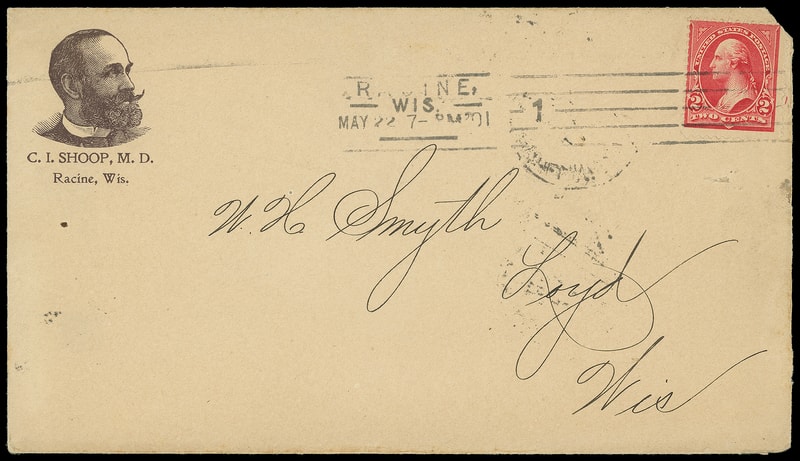 C. I. SHOOP, M. D.
Racine, Wis.
RACINE,
WIS.
MAY 22 7-
1
UNITED STATES POSTAGE
2 2
TWO CENTS
W. H. Smyth
Loyd
Wis